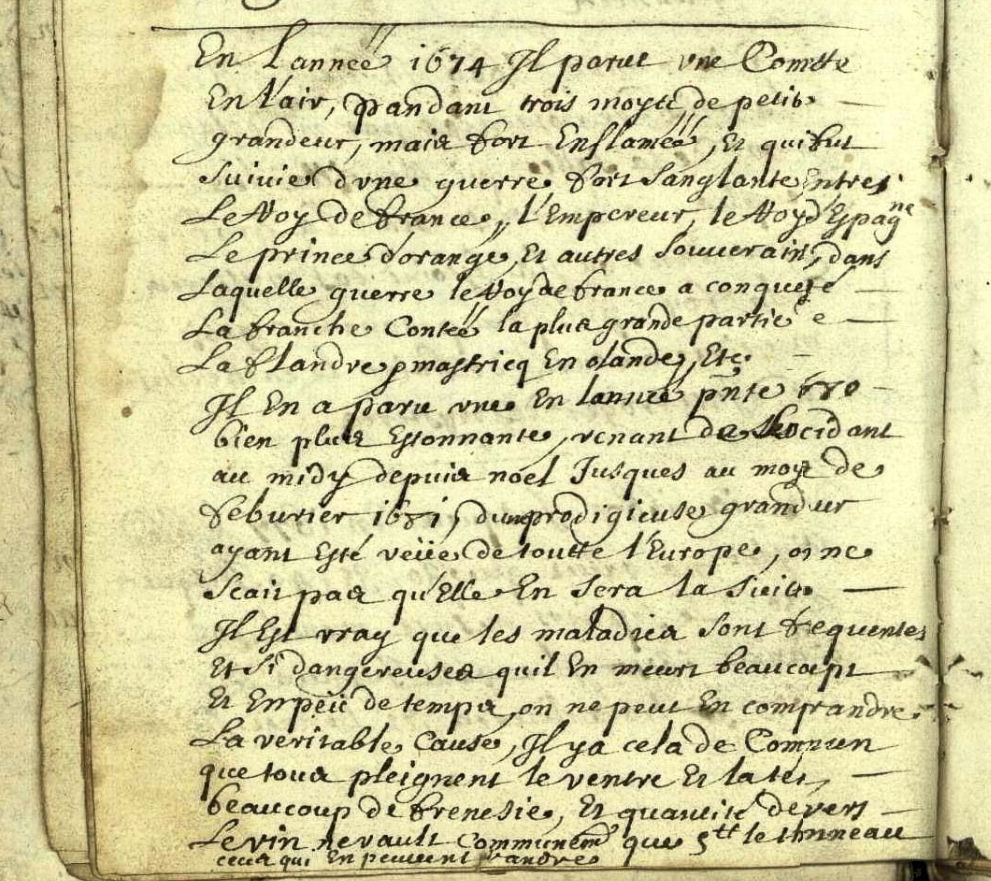 En Lanneé 1674 Il parut vne Comette
En l'air, pandant trois moys de petite
grandeur, mais fort Enflameé, Et qui fut
Suiuie d'vne guerre fort Sanglante Entres
Le Roy de france, l'Empereur, le Roy d'Espagne
Le prince d'orange, Et autres Souuerains, dans
Laquelle guerre le Roy de france a conquesté
La franche Conteé la plus grande partie
La flandre mastricq En olande, Etc.
Il En a paru vne En lanneé pnte 680
bien plus Estonnante, venant de Locidant
au midy depuis noel Jusques au moys de
feburier 1681, dune prodigieuse grandeur
ayant Esté veüe de toutte l'Europe, on ne
Scait pas qu'Elle En Sera la Suitte
Il Est vray que les maladies Sont frequentes
Et Si dangereuses quil En meurt beaucoupt
Et En peu de temps, on ne peut En comprandre
La veritable Cause, Il y a cela de Commun
que tous pleignent le ventre Et la teste,
beaucoup de frenesie, Et quantité de vers
Le vin ne vault Communemt que 5tt le thonneau
ceux qui En peuuent vandre